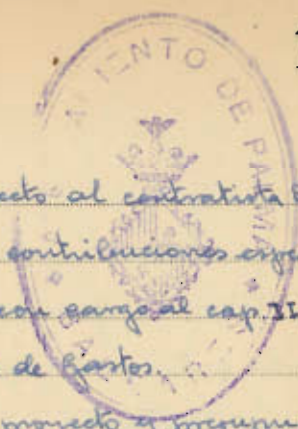 AMIENTO DE PALMA
ecto al contratista
contribuciones espe
con cargo al cap. II
de Gastos.
royecto y presupu